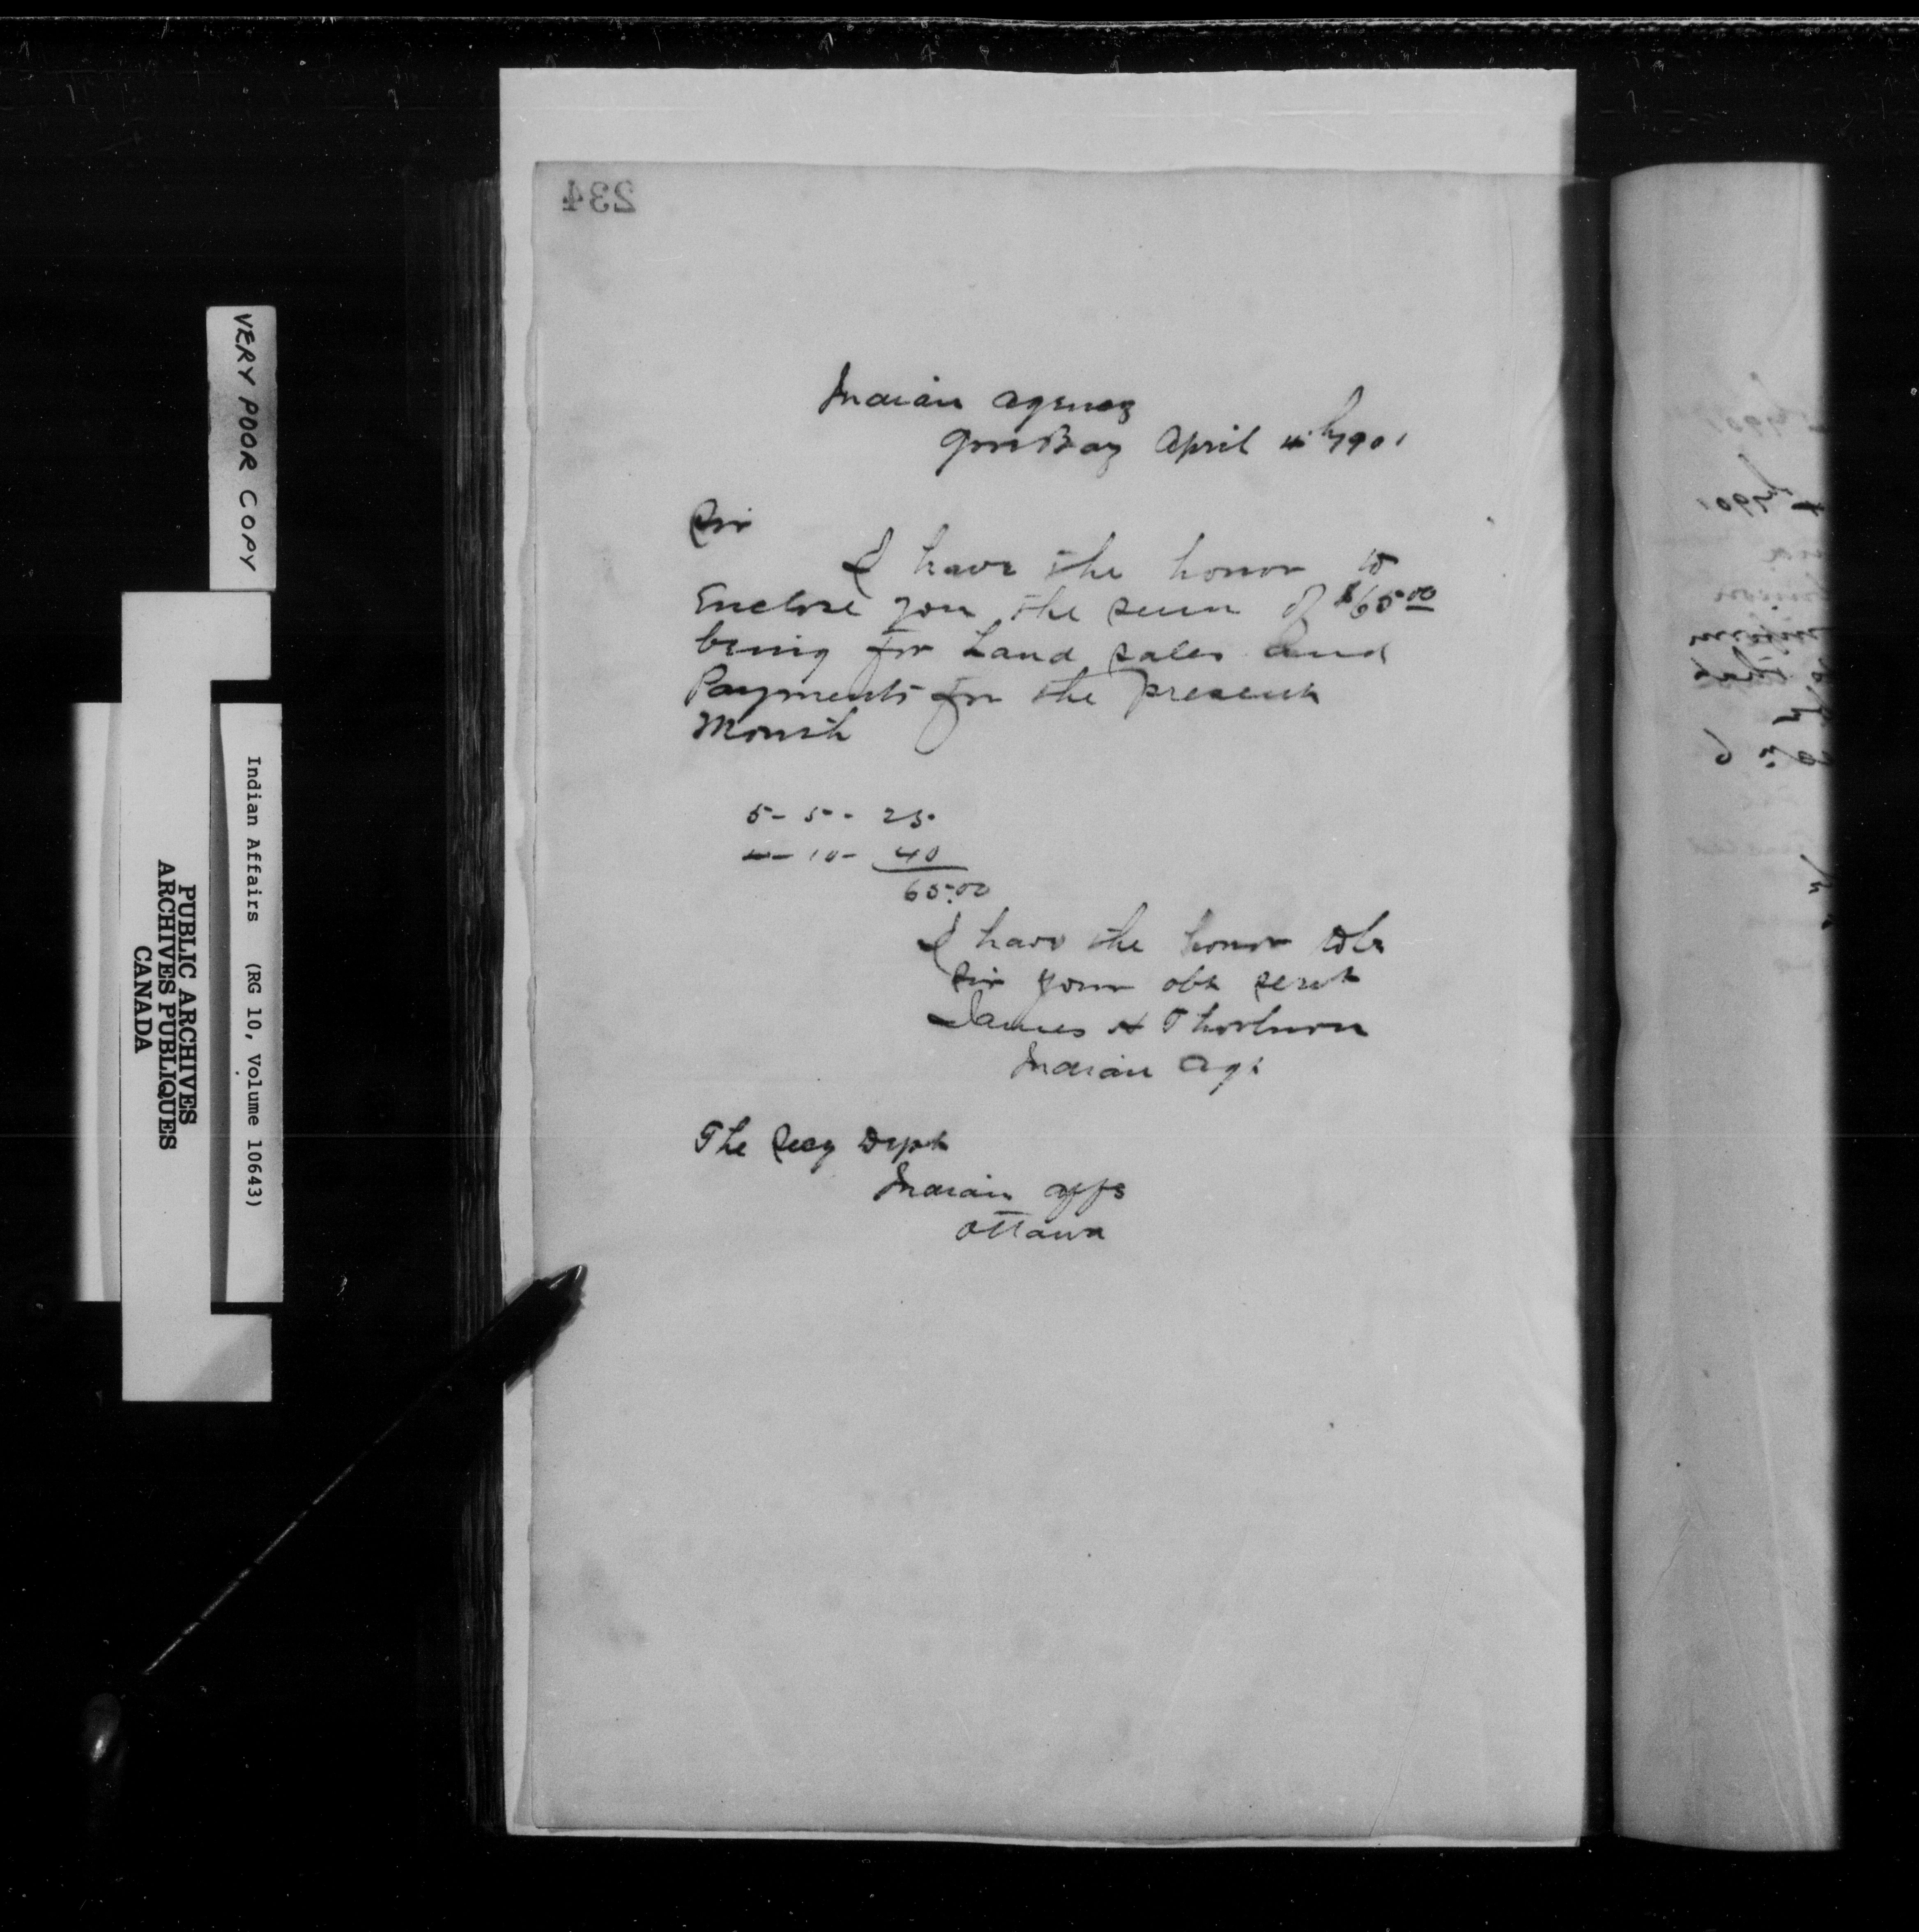 234
Indian Agency
Gore Bay April 4th 1901
Sir
I have the honor to
Enclose you the sum of $65.00
being for Land sales and
Payments for the present
Month
5- 5- 25.
4- 10- 40
65.00
I have the honor to be
Sir your obt servt
James H Thorburn
Indian Agt
The Secy Dept
Indian Affs
Ottawa
VERY POOR COPY
Indian Affairs (RG 10, Volume 10643)
PUBLIC ARCHIVES
ARCHIVES PUBLIQUES
CANADA